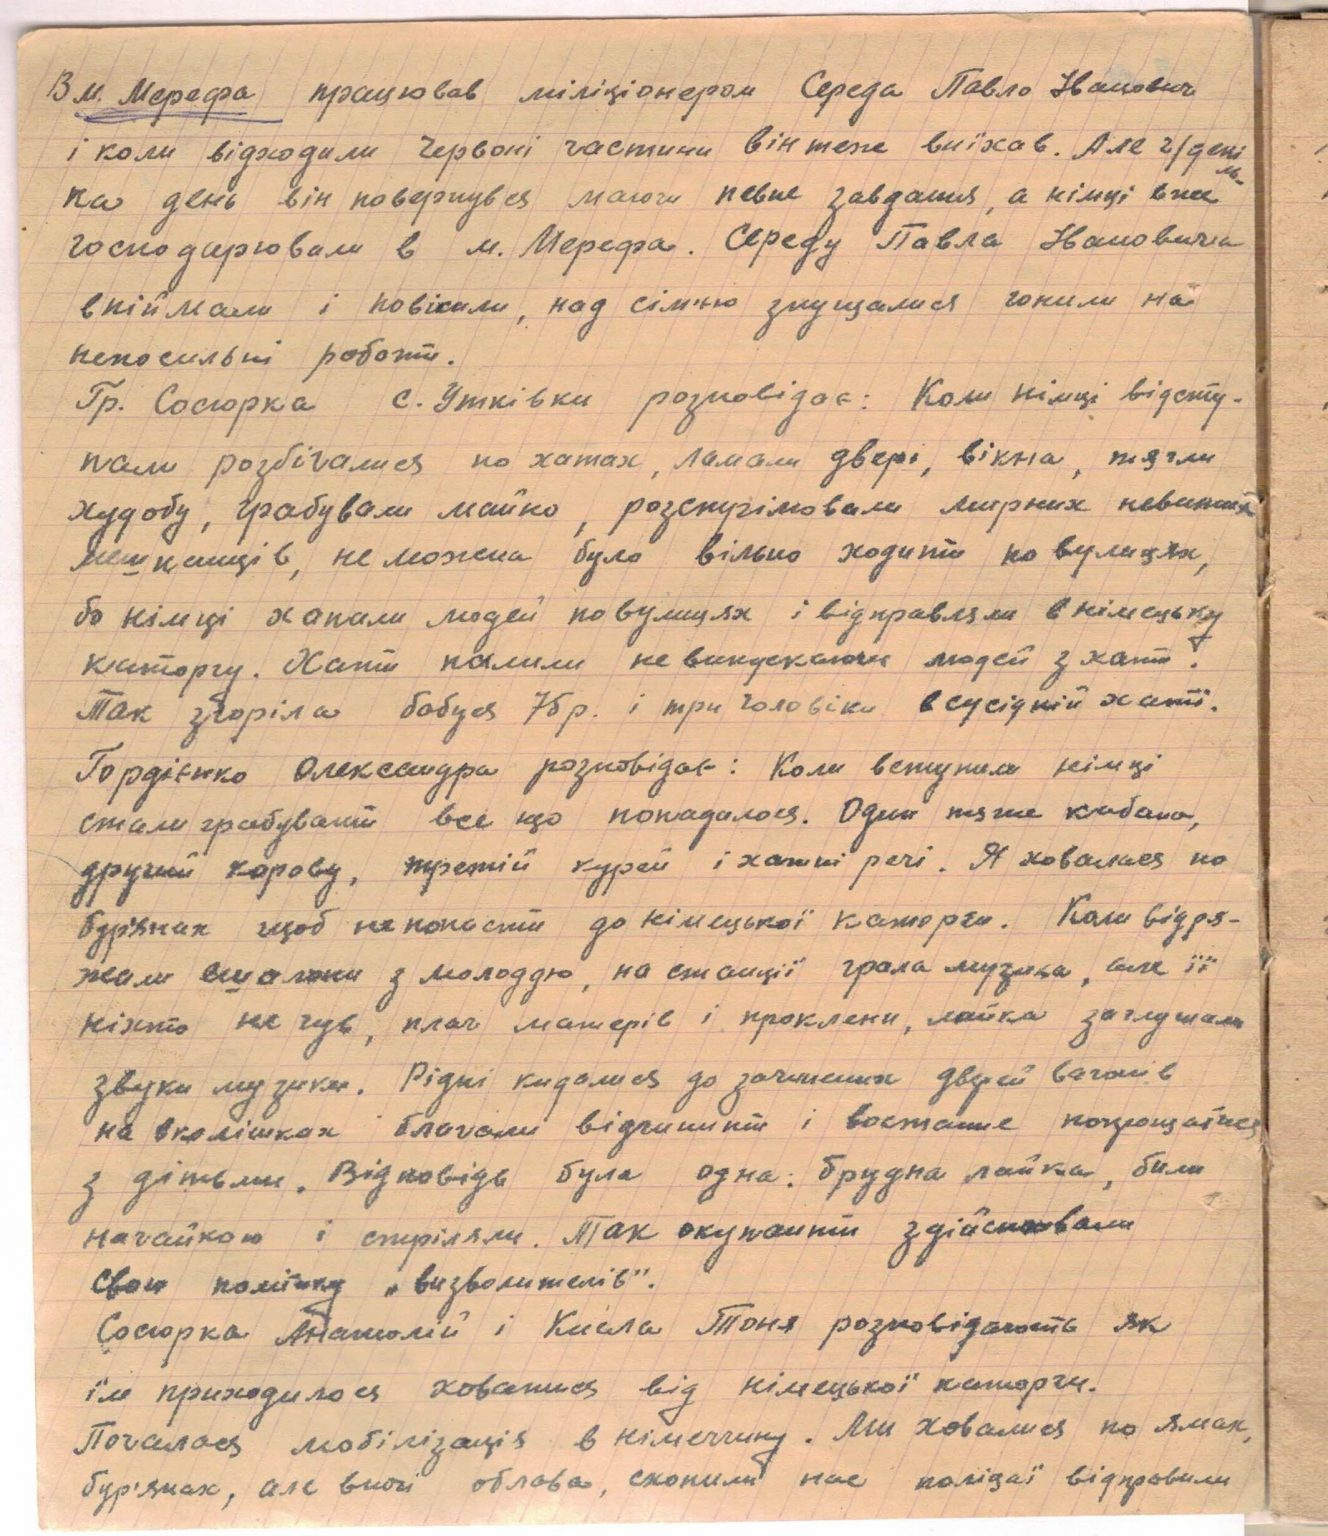 В м. Мерефа працював міліціонером Середа Павло Іванович
і коли відходили Червоні частини він теже виїхав. Але ч/день
на день він повернувся маючи певне завдання, а німці вже
господарювали в м. Мерефа. Середу Павла Івановича
впіймали і повісили, над сім'єю знущалися гонили на
непосильні роботи.
Гр. Сосюрка с. Утківки розповідає: Коли німці відсту-
пали розбігалися по хатах, ламали двері, вікна, тягли
худобу, грабували майно, розстрілювали мирних невинних
мешканців, не можна було вільно ходити по вулицях,
бо німці хапали людей по вулицях і відправляли в німецьку
каторгу. Хати палили не випускаючи людей з хати.
Так згоріла бабуся 76р. і три чоловіки в сусідній хаті.
Гордієнко Олександра розповідає: Коли вступили німці
стали грабувати все що попадалося. Один тягне кабана,
другий корову, третій курей і хатні речі. Я ховалася по
бур'янах щоб не попасти до німецької каторги. Коли відря-
жали ешалони з молоддю, на станції грала музика, але її
ніхто не чув, плач матерів і проклени, лайка заглушали
звуки музики. Рідні кидалися до зачинених дверей вагонів
на вколішках благали відчинити і востаннє попрощатися
з дітьми. Відповідь була одна: брудна лайка, били
нагайкою і стріляли. Так окупанти здійснювали
свою політику „визволителів".
Сосюрка Анатолій і Кисла Тоня розповідають як
їм приходилося ховатися від німецької каторги.
Почалася мобілізація в німеччину. Ми ховалися по ямах,
бур'янах, але вночі облава, схопили нас поліцаї відправили